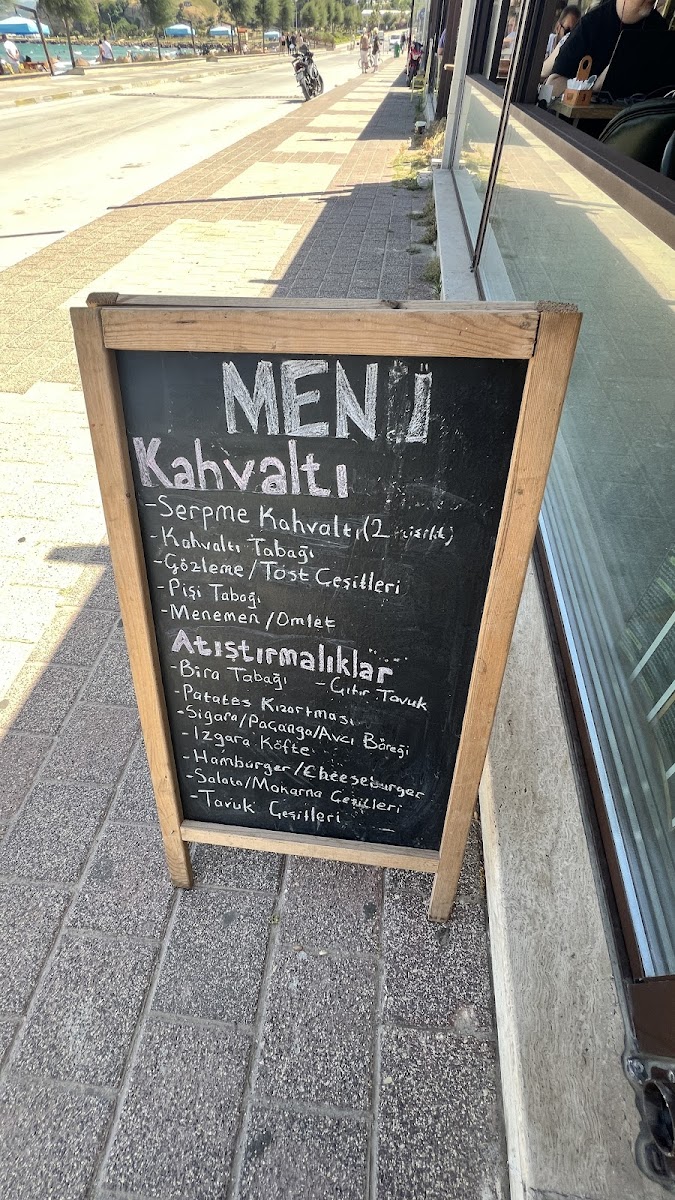 MENÜ
Kahvaltı
-Serpme Kahvaltı (2 kişilik)
-Kahvaltı Tabağı
-Gözleme/Tost Çeşitleri
-Pişi Tabağı
-Menemen/Omlet
Atıştırmalıklar
-Bira Tabağı -Çıtır Tavuk
-Patates Kızartması
-Sigara/Paçanga/Avcı Böreği
-Izgara Köfte
-Hamburger/Cheeseburger
-Salata/Makarna Çeşitleri
-Tavuk Çeşitleri